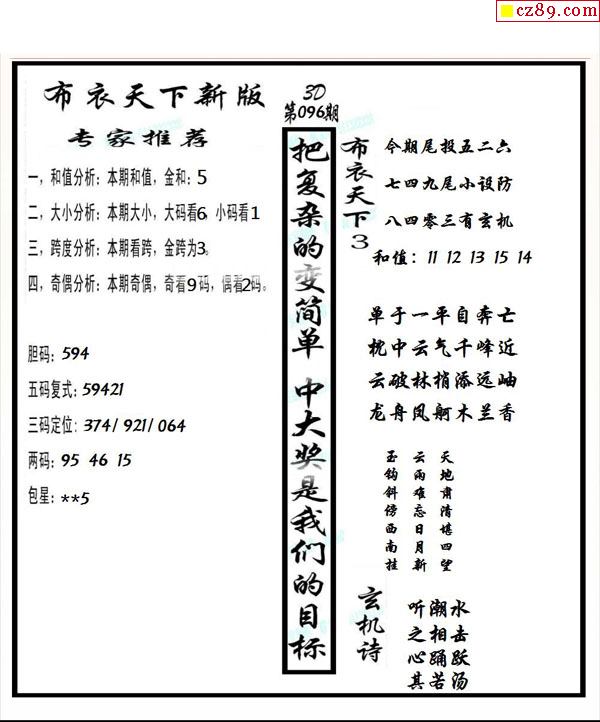 cz89.com
布衣天下新版
专家推荐
一，和值分析：本期和值，金和：5
二，大小分析：本期大小，大码看6，小码看1
三，跨度分析：本期看跨，金跨为3。
四，奇偶分析：本期奇偶，奇看9码，偶看2码。
胆码：594
五码复式：59421
三码定位：374/ 921/ 064
两码：95 46 15
包星：**5
3D
第096期
把复杂的变简单 中大奖是我们的目标
布衣天下3
今期尾投五二六
七四九尾小设防
八四零三有玄机
和值：11 12 13 15 14
单于一平自奔亡
枕中云气千峰近
云破林梢添远岫
龙舟凤舸木兰香
天地肃清堪四望
云雨难忘日月新
玉钩斜傍西南挂
玄机诗
听潮水
之相击
心踊跃
其若汤